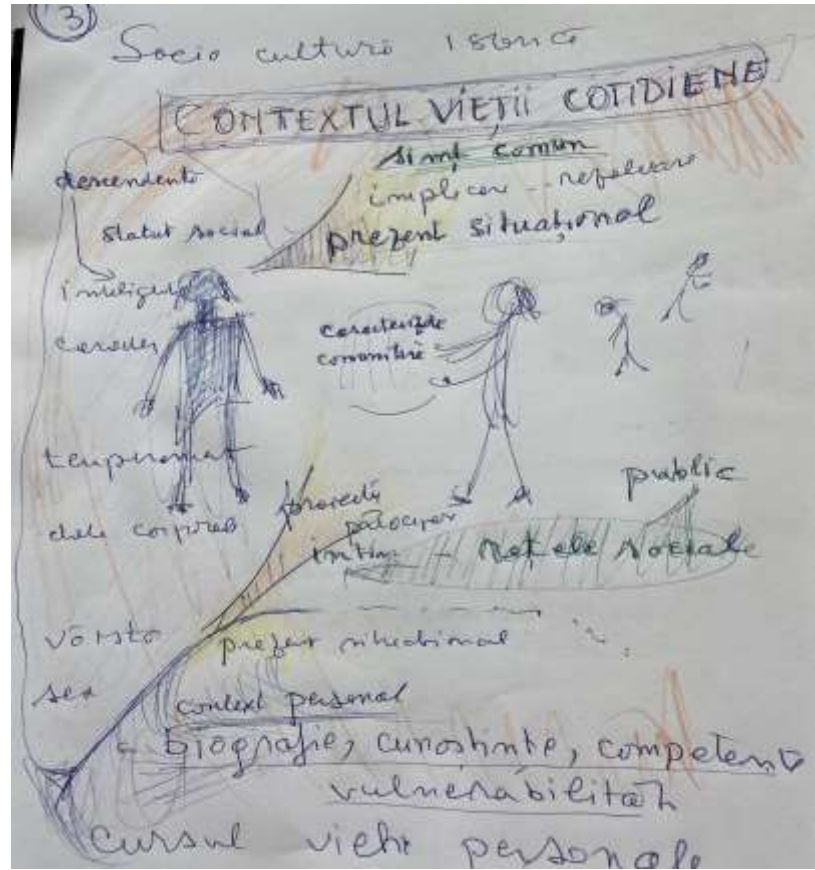 3
Socio cultură istorică
CONTEXTUL VIEȚII COTIDIENE
simț comun
descendență
implicare -- refulare
statut social
prezent situațional
inteligență
caracter
comunitare
temperament
public
proiecte
intim - Rețele sociale
date corporale
vârstă
prezent situațional
sex
context personal
biografie, cunoștințe, competență
vulnerabilități
cursul vieții personale